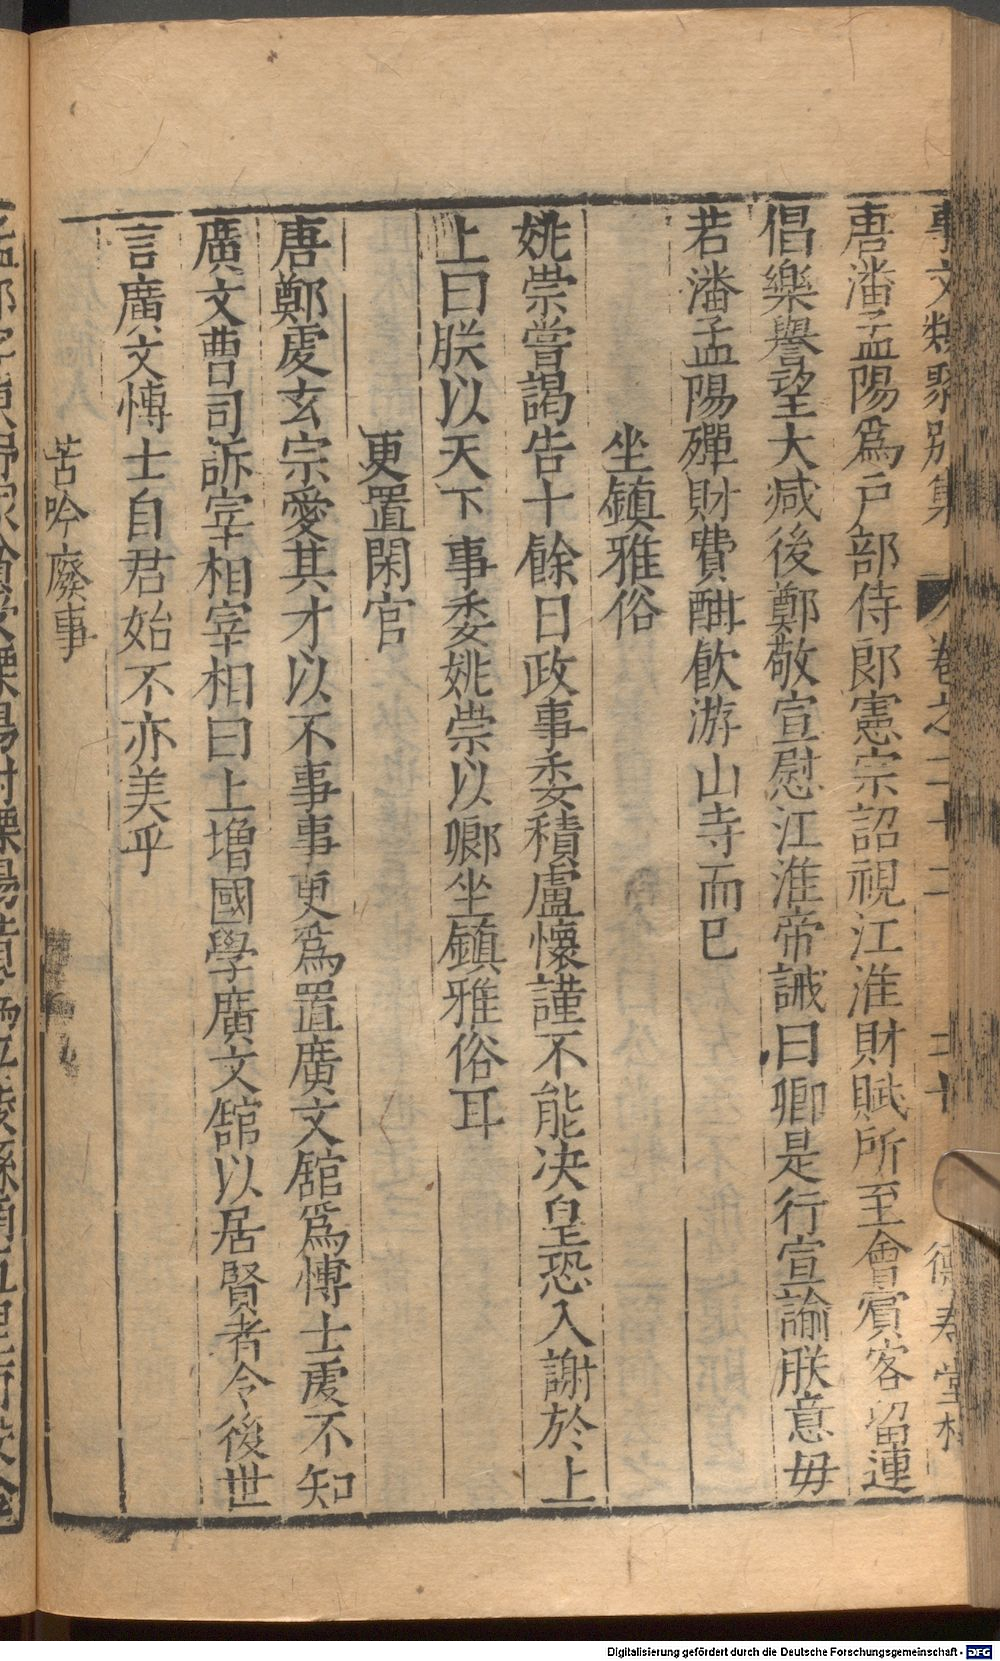 事文類聚別集 卷之二十二 二十 德壽堂梓
唐潘孟陽爲戶部侍郎憲宗詔視江淮財賦所至會賓客留連
倡樂譽望大减後鄭敬宣慰江淮帝誡曰卿是行宣諭朕意毋
若潘孟陽殫財費酣飮游山寺而已
坐鎮雅俗
姚崇嘗謁告十餘日政事委積盧懷謹不能决皇恐入謝於上
上曰朕以天下事委姚崇以卿坐鎮雅俗耳
更置閑官
唐鄭虔玄宗愛其才以不事事更爲置廣文舘爲博士虔不知
廣文曹司訴宰相宰相曰上增國學廣文舘以居賢者令後世
言廣文博士自君始不亦美乎
苦吟廢事
Digitalisierung gefördert durch die Deutsche Forschungsgemeinschaft - DFG